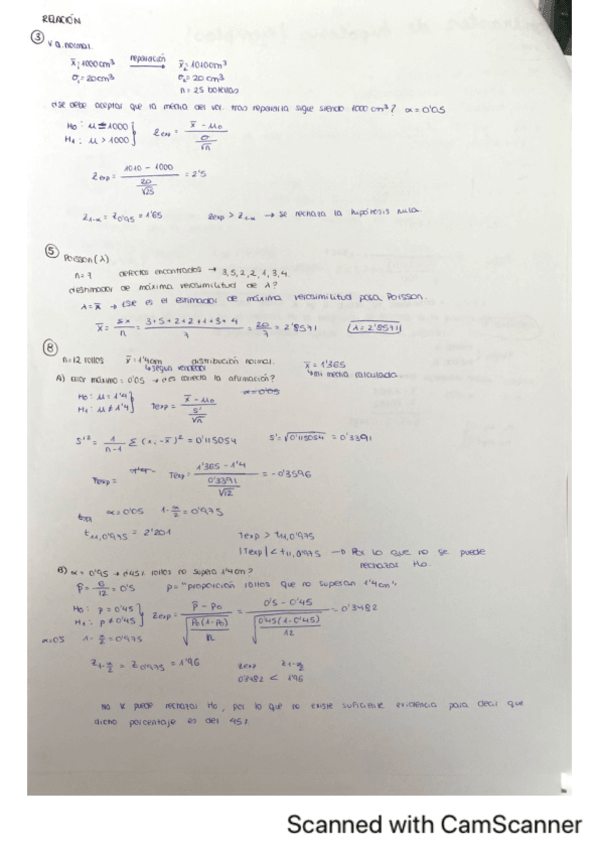 RELACIÓN
③ V.a. normal.
x̄₁=1000cm³ reparación x̄₂=1010cm³
σ₁=20cm³ σ₂=20cm³
n=25 botellas
¿Se debe aceptar que la media del vol. tras repararla sigue siendo 1000cm³? α=0'05
H₀: μ = 1000
H₁: μ > 1000 } Zexp = (x̄ - μ₀) / (σ/√n)
Zexp = (1010 - 1000) / (20/√25) = 2'5
Z₁₋α = Z₀'₉₅ = 1'65 Zexp > Z₁₋α → se rechaza la hipótesis nula.
⑤ Poisson(λ)
n=7 defectos encontrados → 3,5,2,2,1,3,4.
¿Estimador de máxima verosimilitud de λ?
λ=x̄ → Ese es el estimador de máxima verosimilitud para Poisson.
x̄ = Σx/n = (3+5+2+2+1+3+4)/7 = 20/7 = 2'8571 (λ=2'8571)
⑧
n=12 rollos x̄=1'4cm distribución normal. x̄=1'365
↳según vendedor ↳mi media calculada
A) error máximo=0'05 → ¿es correcta la afirmación?
α=0'05
H₀: μ=1'4
H₁: μ≠1'4 } Texp = (x̄ - μ₀) / (S'/√n)
S'² = 1/(n-1) Σ(xᵢ-x̄)² = 0'115054 S' = √0'115054 = 0'3391
Texp = Texp = (1'365 - 1'4) / (0'3391/√12) = -0'3596
α=0'05 1-α/2=0'975
t₁₁,₀'₉₇₅ = 2'201 Texp > t₁₁,₀'₉₇₅
|Texp| < t₁₁,₀'₉₇₅ → Por lo que no se puede
rechazar H₀.
B) α=0'95 → ¿45% rollos no supera 1'4cm?
p̂ = 6/12 = 0'5 p="proporción rollos que no superan 1'4cm"
H₀: p=0'45
H₁: p≠0'45 } Zexp = (p̂ - p₀) / √(p₀(1-p₀)/n) = (0'5 - 0'45) / √(0'45(1-0'45)/12) = 0'3482
α=05 1-α/2=0'975
Z₁₋α/₂ = Z₀'₉₇₅ = 1'96 Zexp Z₁₋α/₂
0'3482 < 1'96
No se puede rechazar H₀, por lo que no existe suficiente evidencia para decir que
dicho porcentaje es del 45%
Scanned with CamScanner